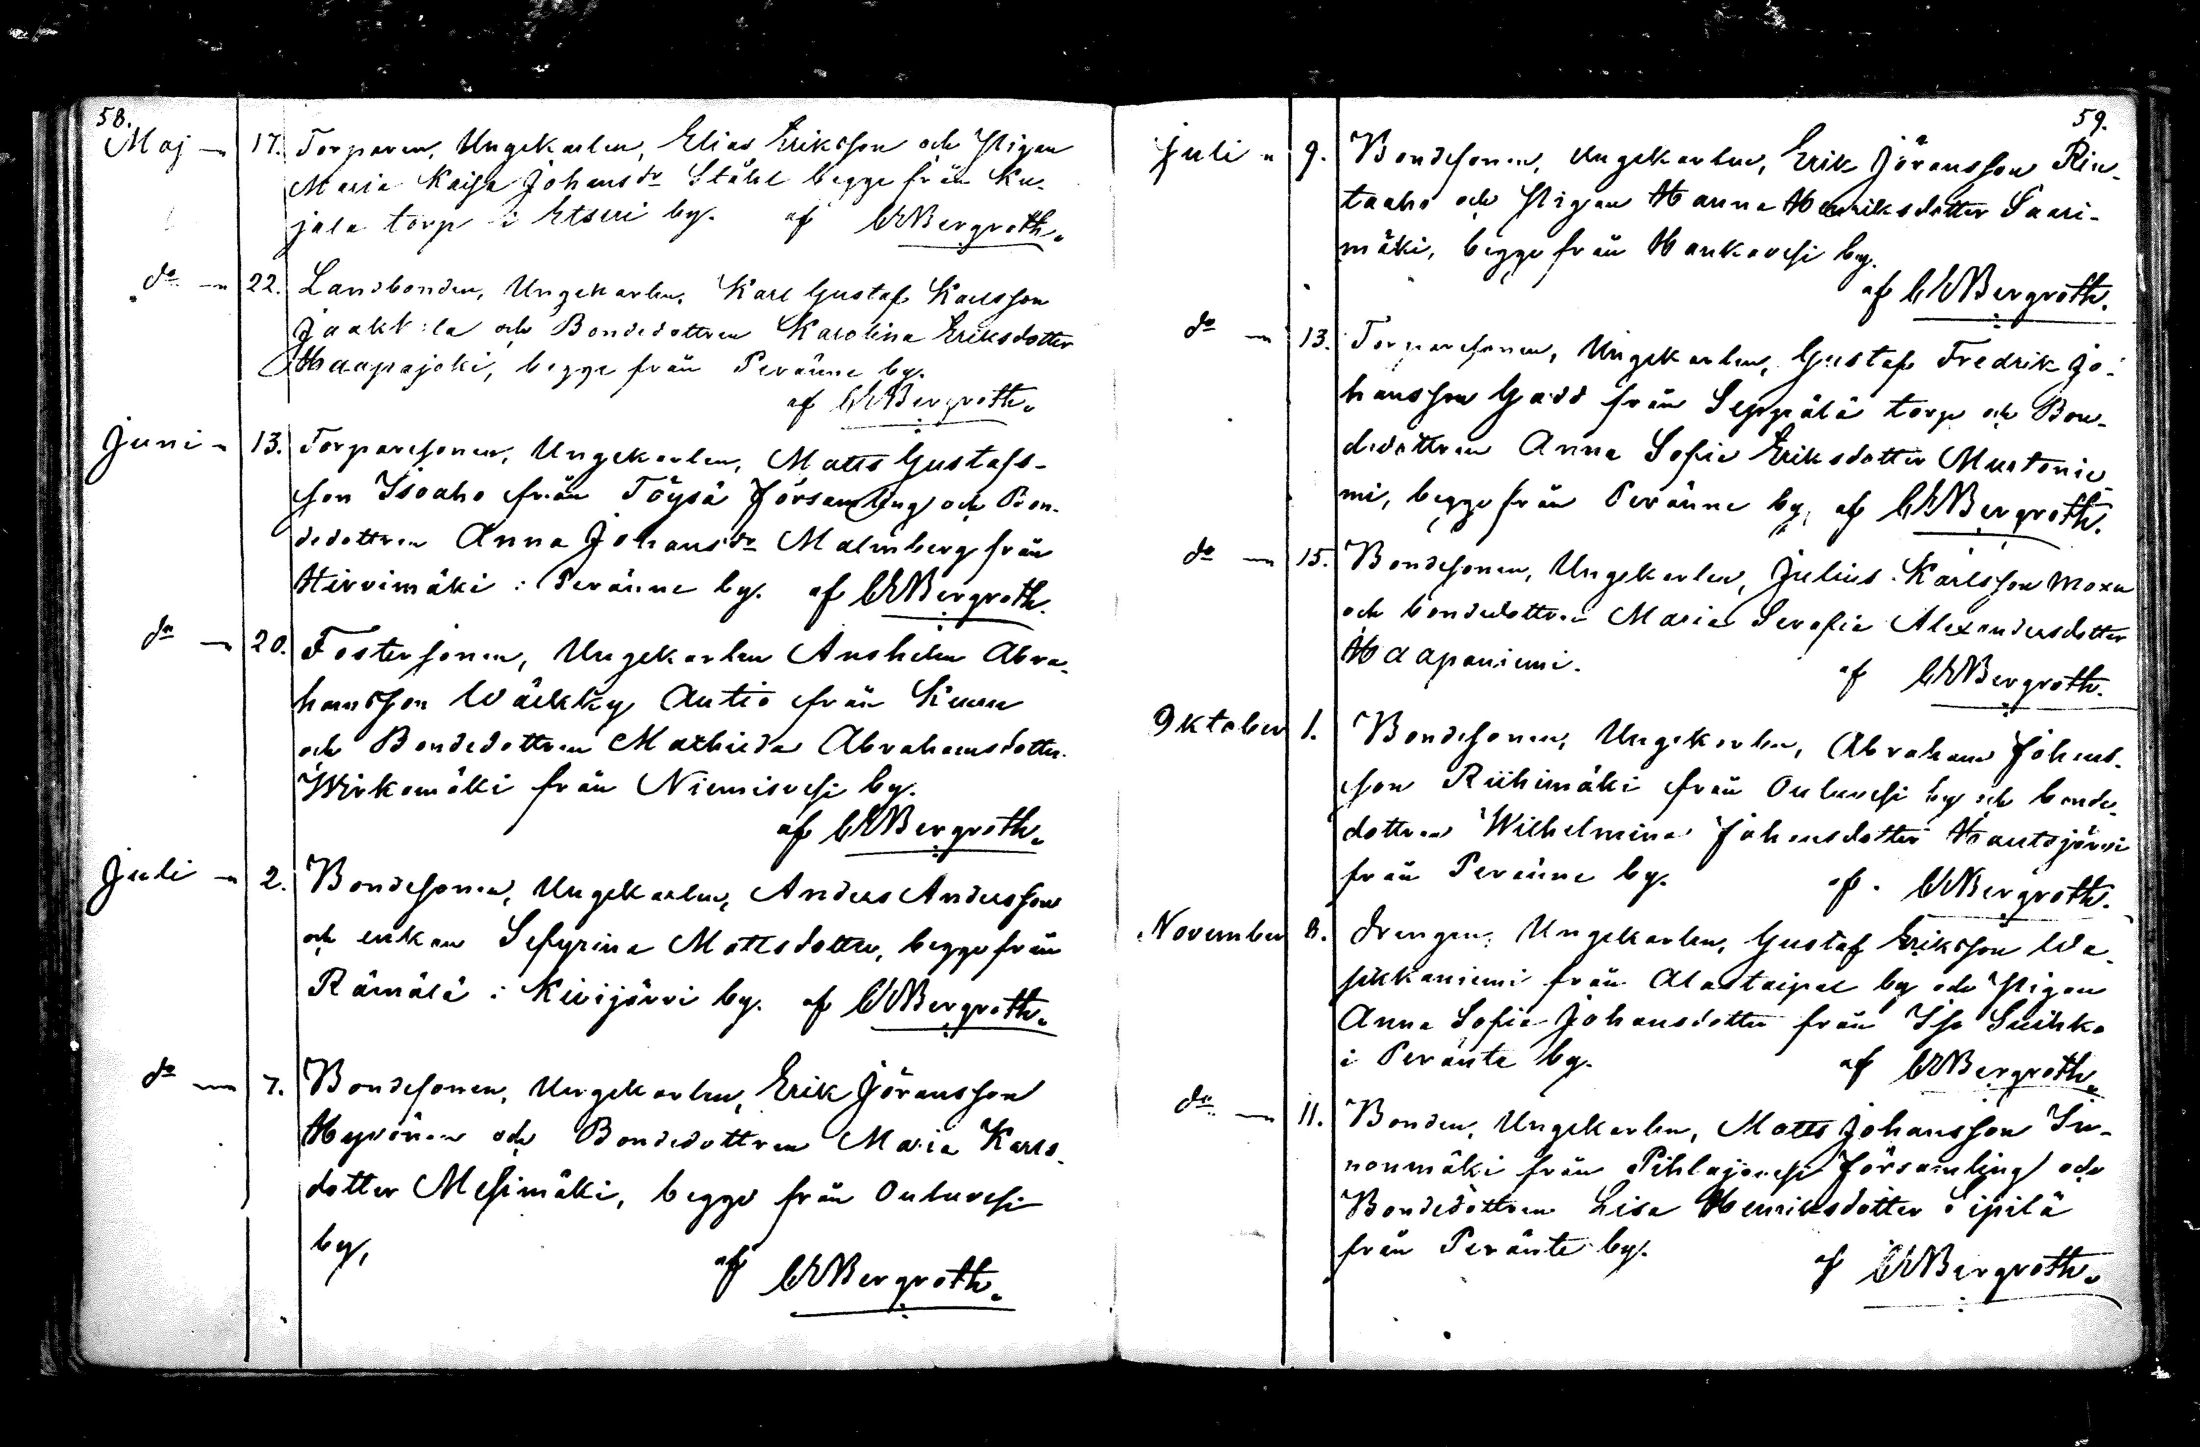 58.
Maj — 17. Torparen, Ungekarlen, Elias Eriksson och Pigan
Maria Kaisa Johansdr Ståhl begge från Ku-
jala torp i Etseri by. af CEBergroth.
do — 22. Landbonden, Ungekarlen, Karl Gustaf Karlsson
Jaakkola och Bondedottren Karolina Eriksdotter
Haapajoki, begge från Peränne by.
af CEBergroth.
Juni — 13. Torparesonen, Ungekarlen, Matts Gustafs-
son Isoaho från Töysä församling och Bon-
dedottren Anna Johansdr Malmberg från
Hirvimäki i Peränne by. af CEBergroth.
do — 20. Fostersonen, Ungekarlen Anshelm Abra-
hamsson Wäckky Autio från
och Bondedottren Mathilda Abrahamsdotter
Wirkamäki från Niemisvesi by.
af CEBergroth.
Juli — 2. Bondesonen, Ungekarlen, Anders Andersson
och enkan Sefyrina Mattsdotter, begge från
Rämälä i Kivijärvi by. af CEBergroth.
do — 7. Bondesonen, Ungekarlen, Erik Jöransson
Hyvönen och Bondedottren Maria Karls-
dotter Mesimäki, begge från Ouluvesi
by, af CEBergroth.
59.
Juli " 9. Bondesonen, Ungekarlen, Erik Jöransson Rin-
taaho och Pigan Hanna Henriksdotter Saari-
mäki, begge från Hankavesi by.
af CEBergroth.
do — 13. Torparesonen, Ungekarlen, Gustaf Fredrik Jo-
hansson Gadd från Seppälä torp och Bon-
dedottren Anna Sofia Eriksdotter Murtonie-
mi, begge från Peränne by, af CEBergroth.
do — 15. Bondesonen, Ungekarlen, Julius Karlsson Moxu
och bondedottren Maria Serafia Alexandersdotter
Haapaniemi. af CEBergroth.
Oktober 1. Bondesonen, Ungekarlen, Abraham Johans-
son Riihimäki från Ouluvesi by och bonde-
dottren Wilhelmina Johansdotter Hautajärvi
från Peränne by. af CEBergroth.
November 8. Drengen, Ungekarlen, Gustaf Eriksson Wa-
sikkaniemi från Alastaipal by och Pigan
Anna Sofia Johansdotter från Iso Suihko
i Peränte by. af CEBergroth.
do — 11. Bonden, Ungekarlen, Matts Johansson In-
nonmäki från Pihlajavesi församling och
Bondedottren Lisa Henriksdotter Sipilä
från Peränte by. af CEBergroth.